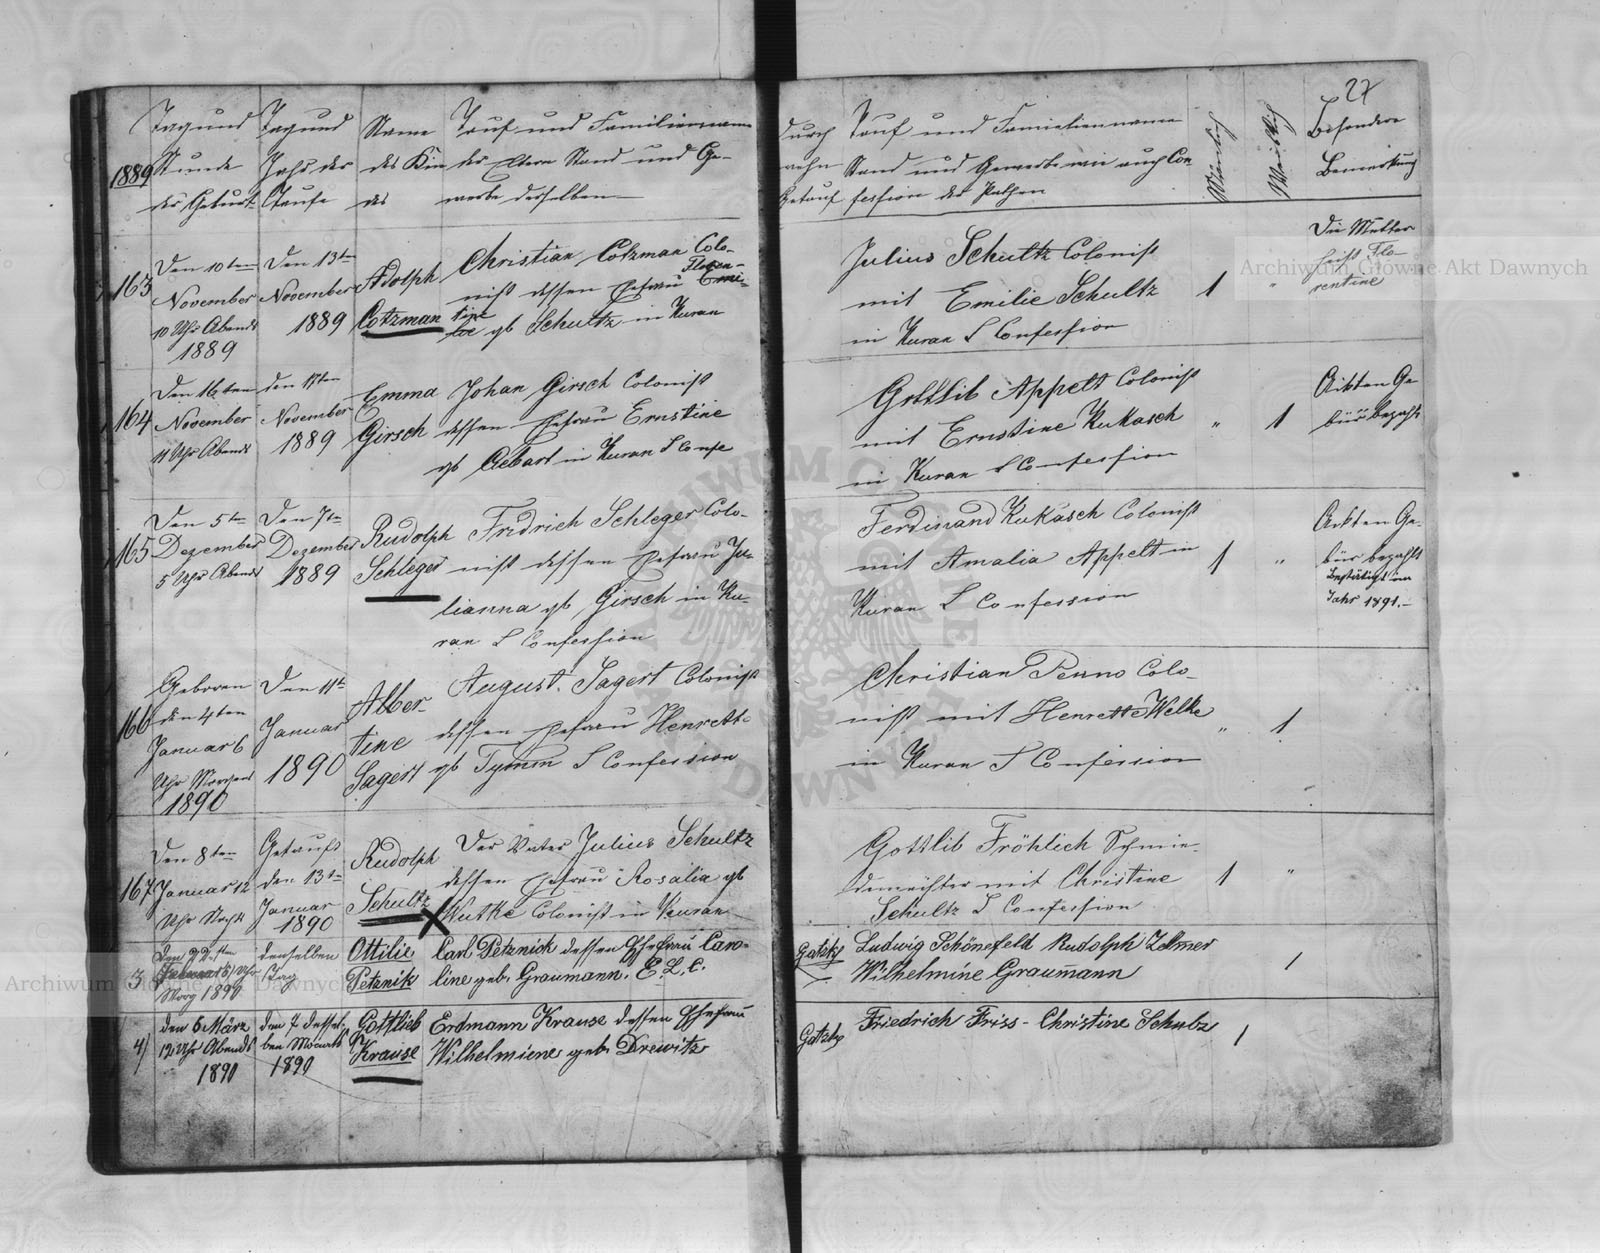 27
1889
Tag und
Stunde
der Geburt
Tag und
Jahr der
Taufe
Name
des Kin
des
Tauf und Familienname
der Eltern Stand und Ge-
werbe derselben
durch
getauf
Tauf und Familienname
Stand und Gewerbe wie auch Con
fession der Pathen
Männlich
Weiblich
Besondere
Bemerkung
163
Den 10ten
November
10 Uhr Abends
1889
Den 13ten
November
1889
Adolph
Cotzman
Christian Cotzman Colo-
Floren-
nist dessen Ehefrau
tine
gb Schultz in Kuran
Julius Schultz Colonist
mit Emilie Schultz
in Kuran L Confession
1
"
Die Mutter
heist Flo-
rentine
164
Den 16ten
November
11 Uhr Abends
den 17ten
November
1889
Emma
Girsch
Johan Girsch Colonist
dessen Ehefrau Ernstine
gb Gebart in Kuran L Confe
Gottlib Appelt Colonist
mit Ernstine Kukasch
in Kuran L Confession
"
1
Akten Ge
bür bezahlt
165
Den 5ten
Dezember
5 Uhr Abends
Den 7ten
Dezember
1889
Rudolph
Schleger
Fridrich Schleger Colo-
nist dessen Ehefrau Ju-
lianna gb Girsch in Ku-
ran L Confession
Ferdinand Kukasch Colonist
mit Amalia Appelt in
Kuran L Confession
1
"
Akten Ge-
bür bezahlt
Bestätigt im
Jahr 1891.-
166
Geboren
den 4ten
Januar 6
Uhr Morgens
1890
Den 11ten
Januar
1890
Alber-
tine
Sagert
August Sagert Colonist
dessen Ehefrau Henrette
gb Tymm L Confession
Christian Penno Colo-
nist mit Henrette Welke
in Kuran L Confession
"
1
167
Den 8ten
Januar 12
Uhr Nachts
Getauft
den 13ten
Januar
1890
Rudolph
Schultz
Der Vater Julius Schultz
dessen Ehefrau Rosalia gb
Wutke Colonist in Kuran
Gottlib Fröhlich Schmie-
demeister mit Christine
Schultz L Confession
1
"
3
Den 22.ten
Februar 6 Uhr
Morg 1890
denselben
Tag
Ottilie
Petznik
Carl Petznick dessen Ehefrau Caro-
line geb. Graumann. E. L. C.
Ludwig Schönefeld Rudolph Zelmer
Wilhelmine Graumann
1
4/
den 6 März
12 Uhr Abends
1890
den 7 dessel-
ben Monats
1890
Gottlieb
Krause
Erdmann Krause dessen Ehefrau
Wilhelmiene geb. Drewitz
Friedrich Friss - Christine Schulz
1
Archiwum Główne Akt Dawnych
Archiwum Główne Akt Dawnych